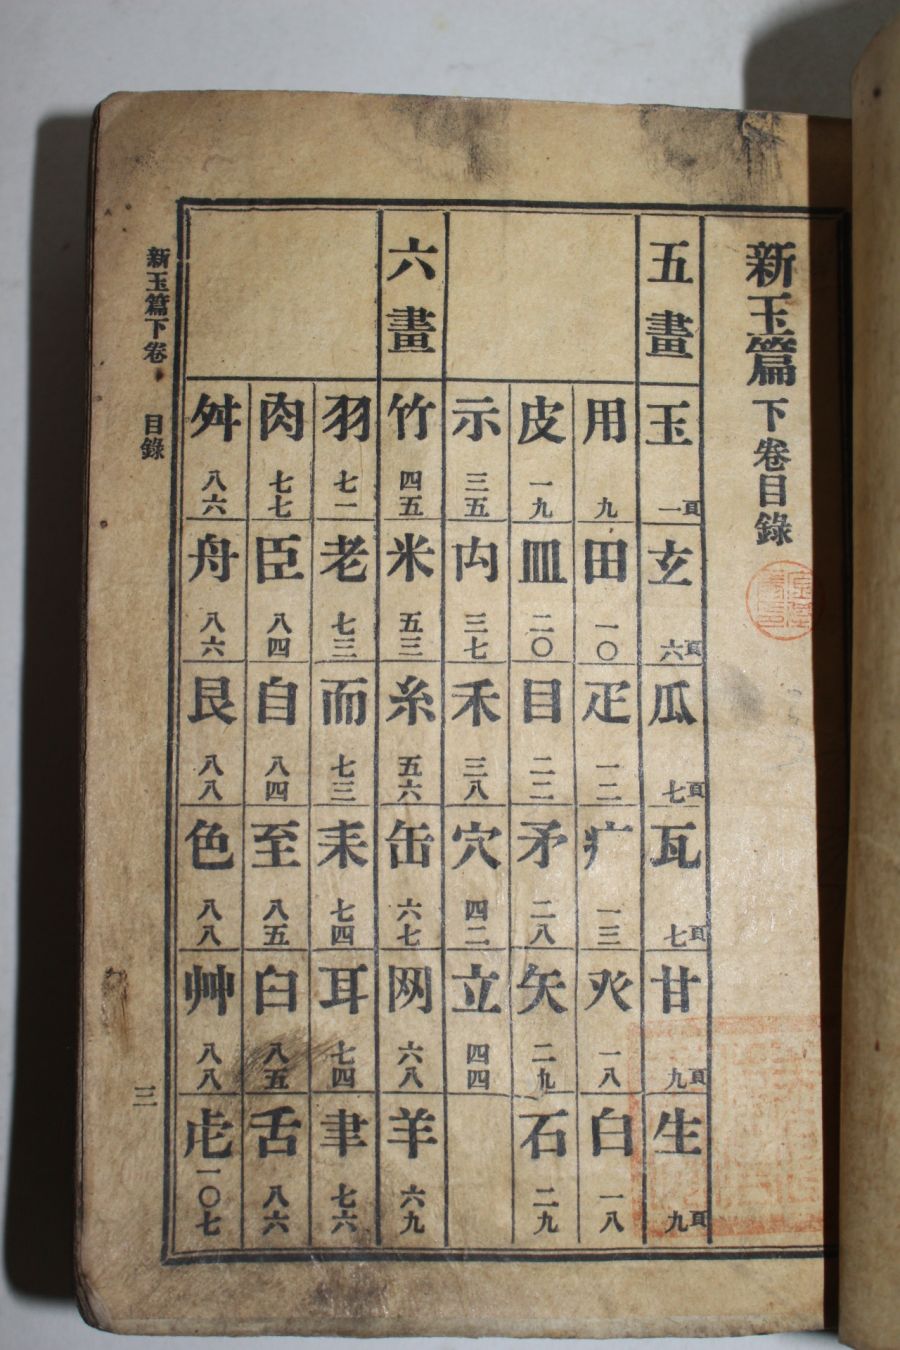 新玉篇下卷目錄
五畫
玉 一頁
玄 六頁
瓜 七頁
瓦 七頁
甘 九頁
生 九頁
用 九
田 一〇
疋 一二
疒 一三
癶 一八
白 一八
皮 一九
皿 二〇
目 二二
矛 二八
矢 二九
石 二九
示 三五
禸 三七
禾 三八
穴 四二
立 四四
六畫
竹 四五
米 五三
糸 五六
缶 六七
网 六八
羊 六九
羽 七一
老 七三
而 七三
耒 七四
耳 七四
聿 七六
肉 七七
臣 八四
自 八四
至 八五
臼 八五
舌 八六
舛 八六
舟 八六
艮 八八
色 八八
艸 八八
虍 一〇七
新玉篇下卷 目錄
三